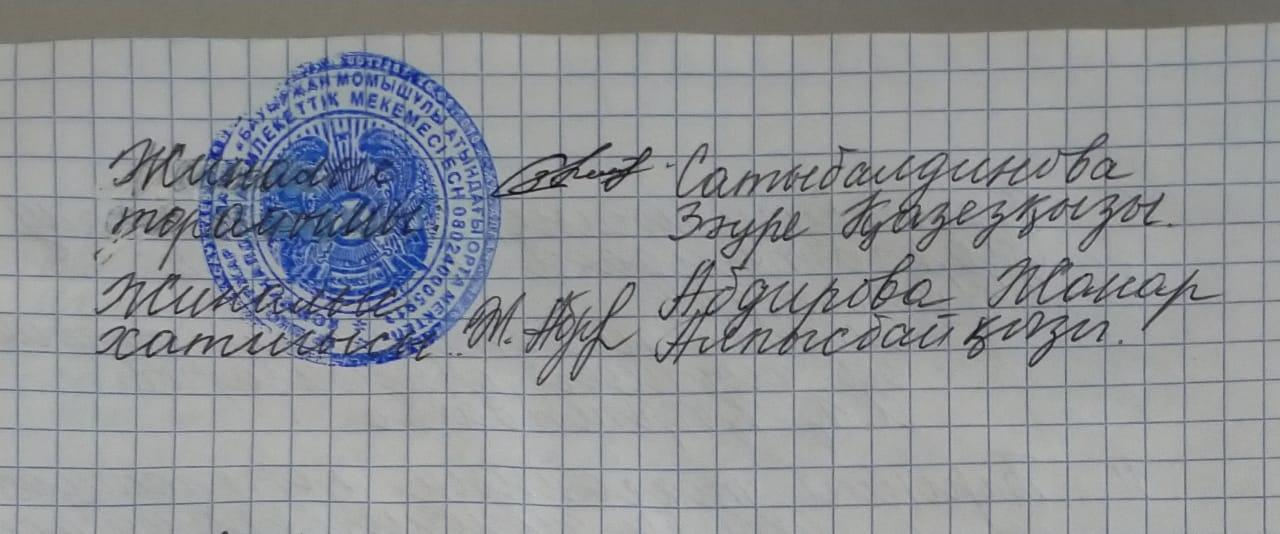 Жиналыс
төрайымы
Сатыбалдинова
Зәуре Қазезқызы.
Жиналыс
хатшысы
Ж. Абдир
Абдирова Жанар
Алпысбайқызы.
БАУЫРЖАН МОМЫШҰЛЫ АТЫНДАҒЫ ОРТА МЕКТЕП
МЕКЕМЕСІ БСН